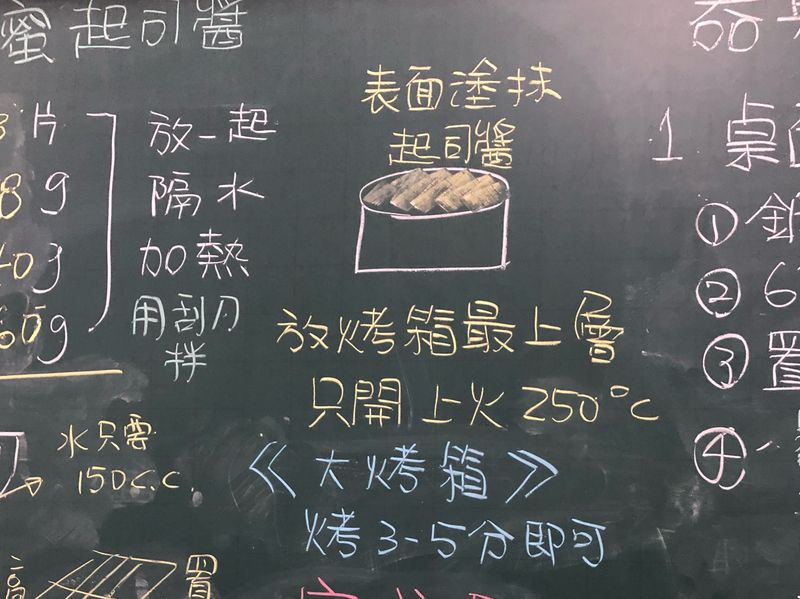 蜜起司醬
片
8g
40g
60g
放一起
隔水
加熱
用刮刀
拌
水只需
150c.c.
表面塗抹
起司醬
放烤箱最上層
只開上火250°C
《大烤箱》
烤3-5分即可
置
1 桌
①
② 6
③ 置
④